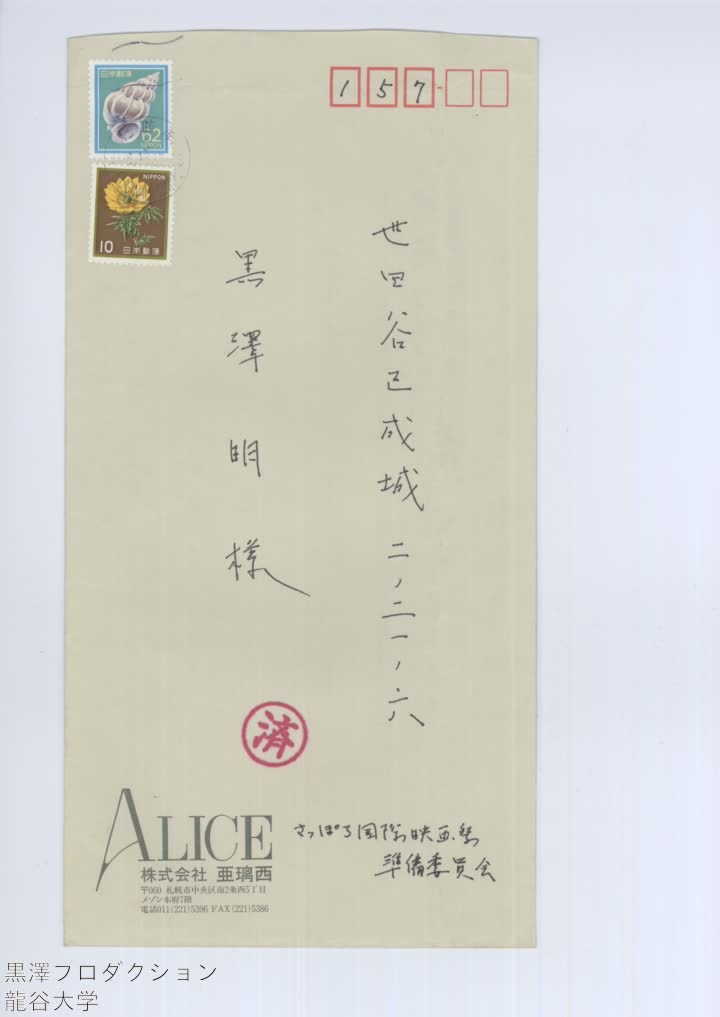 157
世田谷区成城 二、二一、六
黒澤明様
日本郵便
62
NIPPON
NIPPON
10 日本郵便
済
さっぽろ国際映画祭
準備委員会
ALICE
株式会社 亜璃西
〒060 札幌市中央区南2条西5丁目
メゾン本府7階
電話011(221)5396 FAX(221)5386
黒澤フロダクション
龍谷大学